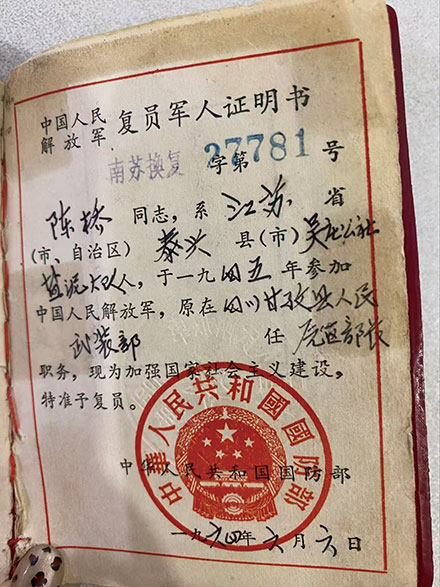 中国人民
解放军 复员军人证明书
南苏换复 字第 27781 号
陈桥 同志，系 江苏 省
(市、自治区) 泰兴 县(市)
人，于一九四五年参加
中国人民解放军，原在四川甘孜县人民
武装部 任
职务，现为加强国家社会主义建设，
特准予复员。
中华人民共和國國防部
中华人民共和国国防部
一九六四年六月六日